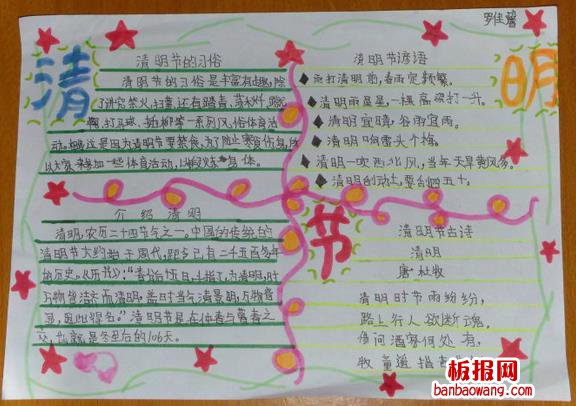 罗佳馨
清
明
节
清明节的习俗
清明节的习俗是丰富有趣,除
了讲究禁火、扫墓,还有踏青、荡秋千、蹴
鞠、打马球、插柳等一系列风俗体育活
动。相传这是因为清明节要禁食,为了防止寒食伤身,所
以大家来参加一些体育活动,以锻炼身体。
清明节谚语
雨打清明前,春雨定频繁。
清明雨星星,一棵高粱打一升。
清明宜晴,谷雨宜雨。
清明响雷头个梅。
清明一吹西北风,当年天旱黄风多。
清明刮动土,要刮四五十。
介绍清明
清明,农历二十四节气之一。中国的传统的
清明节大约始于周代,距今已有二千五百多年
的历史。《历书》:"春分后十五日,斗指丁,为清明,时
万物皆洁齐而清明,盖时当气清景明,万物皆
显,因此得名。"清明节是在仲春与暮春之
交,也就是冬至后的106天。
清明节古诗
清明
唐 杜牧
清明时节雨纷纷,
路上行人欲断魂。
借问酒家何处有,
牧童遥指
板报网
banbaowang.com